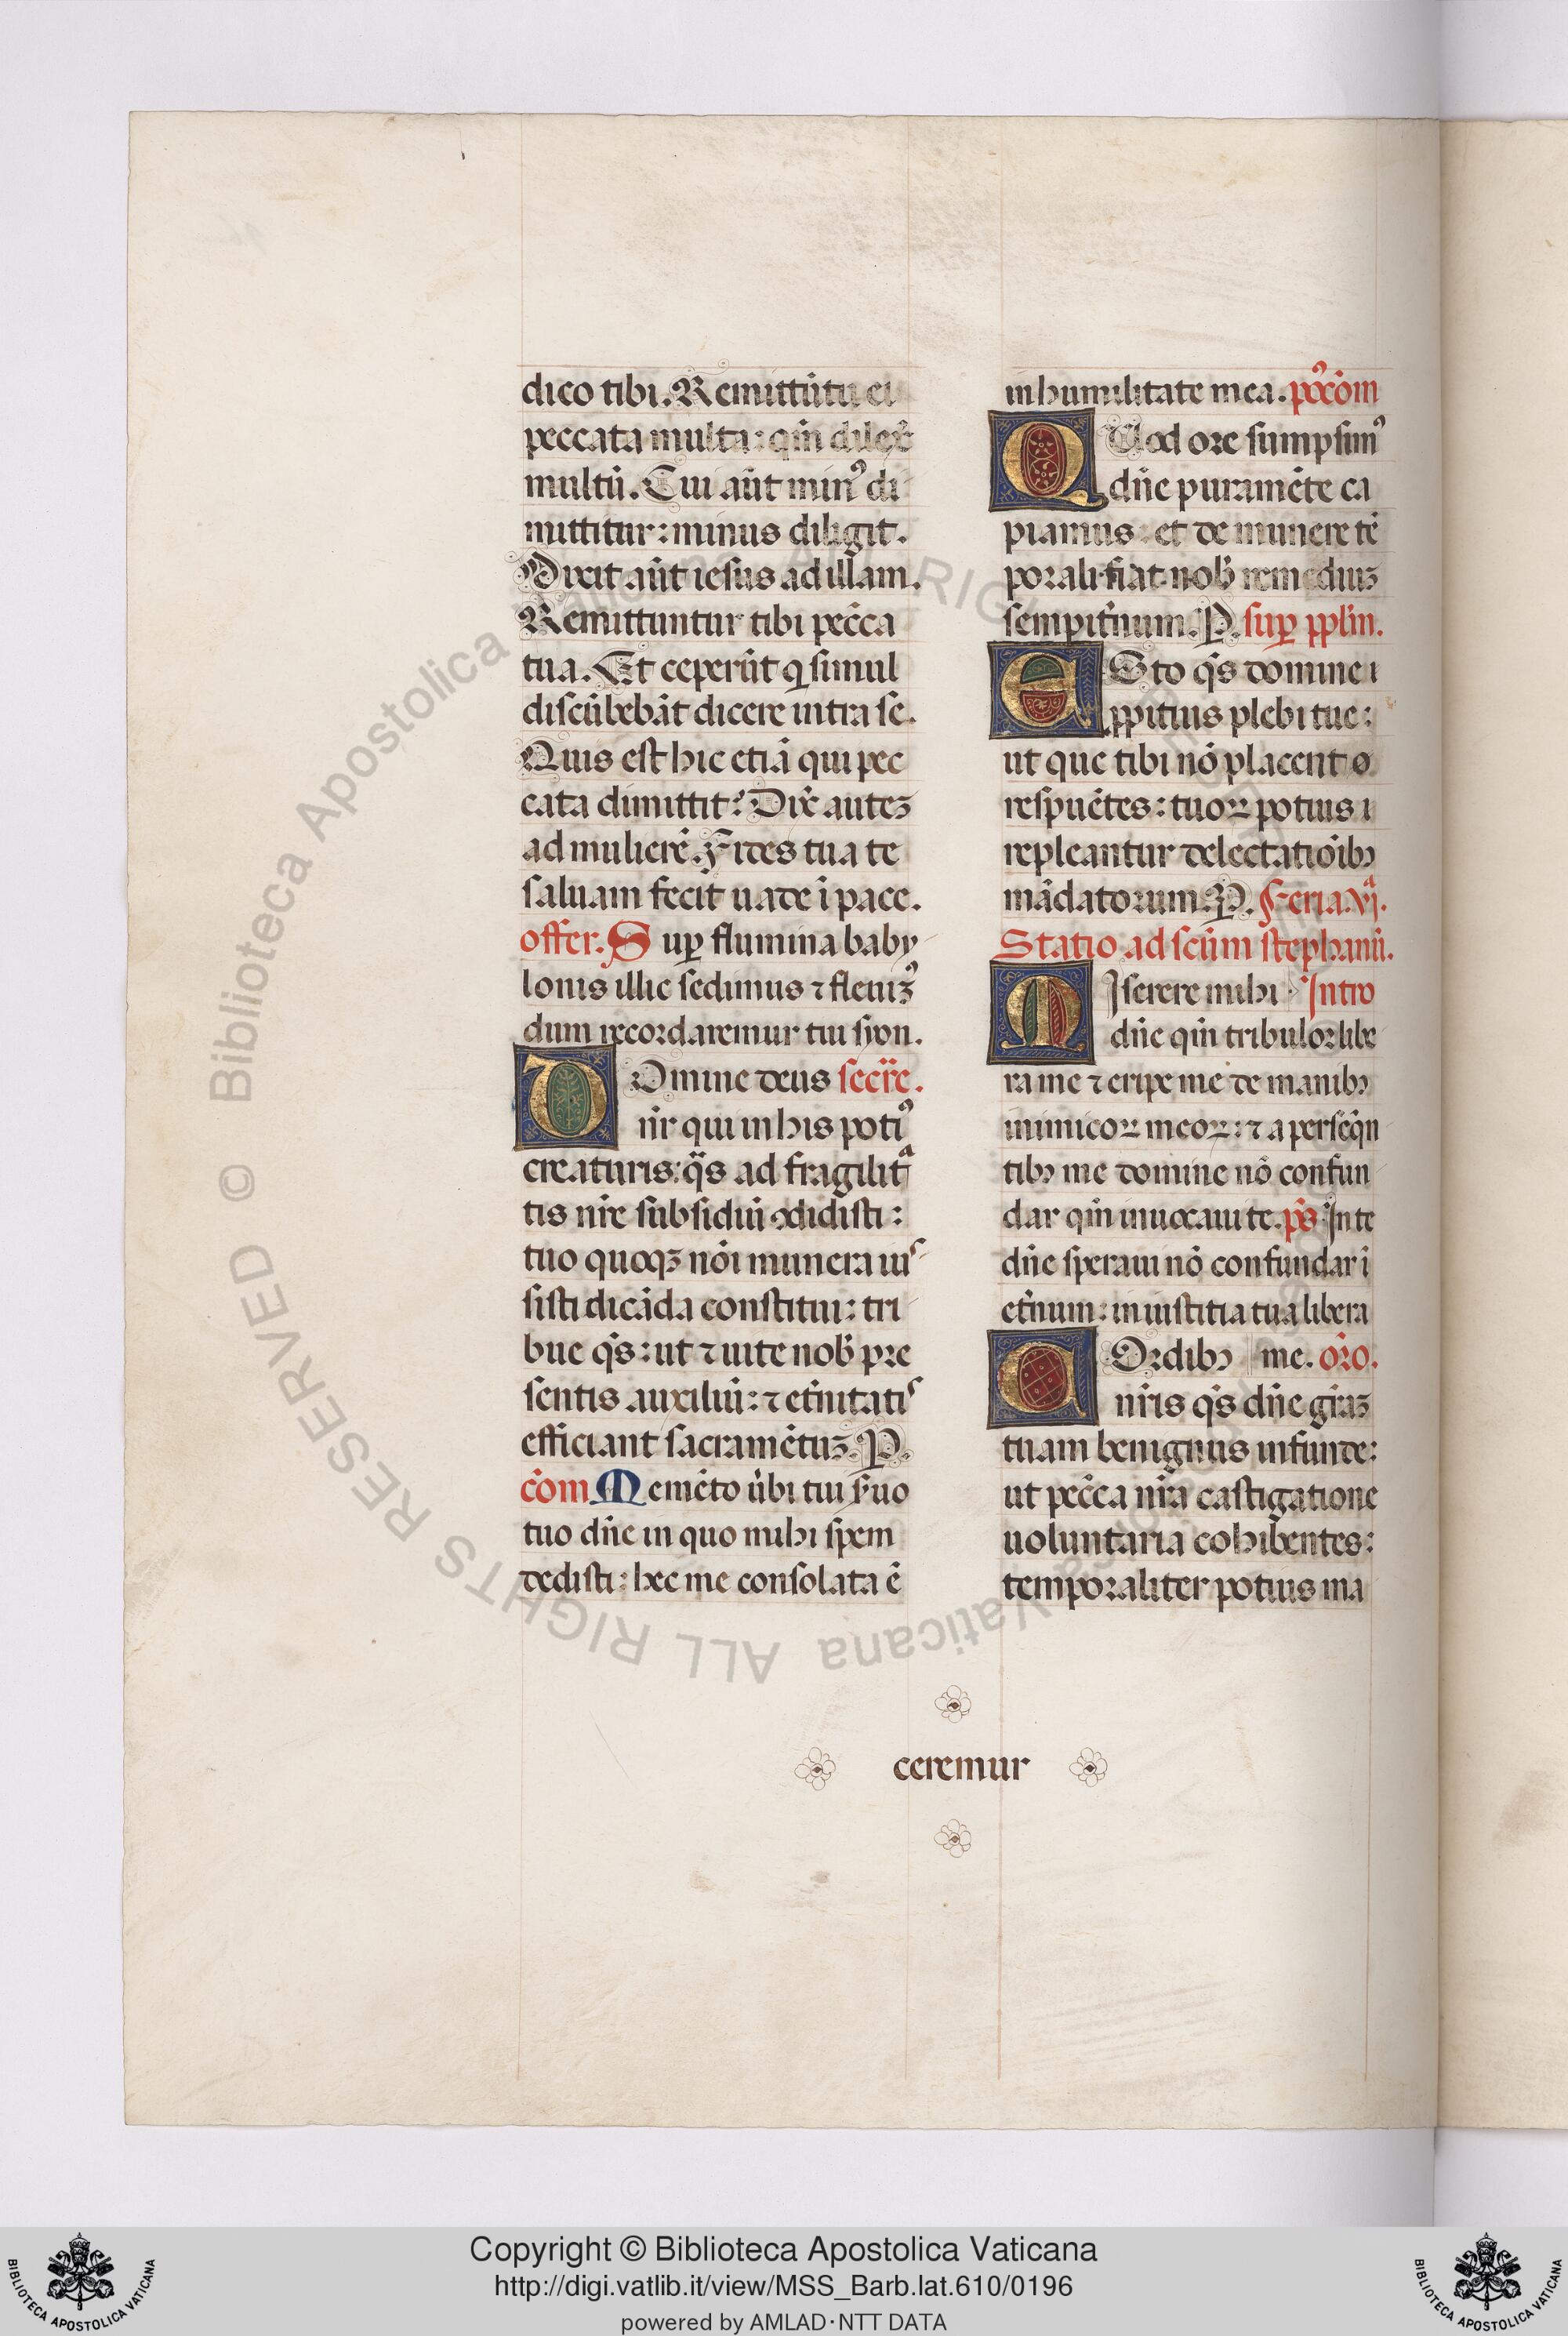 dico tibi. Remittūtu ei
peccata multa: qm̄ dilex̄
multū. Cui aūt min⁹ di
mittitur: minus diligit.
Dixit aūt iesus ad illam.
Remittuntur tibi pec̄ca
tua. Et ceperūt q simul
discūbebāt dicere intra se.
Quis est hic etiā qui pec
cata dimittit? Dix̄ auteꝫ
ad mulierē. Fides tua te
saluam fecit uade ī pace.
offer. Suꝑ flumina baby
lonis illic sedimus ⁊ fleuiꝫ⁹
dum recordaremur tui syon.
Domine deus secr̄e.
nr̄ qui in his poti⁹
creaturis: qͣs ad fragilitͣ
tis nr̄e subsidiū ↄdidisti:
tuo quoqꝫ nōi munera iuˢ
sisti dicāda constitui: tri
bue qs̄: ut ⁊ uite nob̄ pre
sentis auxiliū: ⁊ et̄nitatiˢ
efficiant sacramētuꝫ. P.
cōm Memēto ūbi tui s̄uo
tuo dn̄e in quo mihi spem
dedisti: hec me consolata ē
in humilitate mea. pꝰcōm
QUod ore sumpsim⁹
dn̄e pura mēte ca
piamus: et de munere tē
porali fiat nob̄ remediuꝫ
sempit̄num. P. suꝑ pplm̄.
ESto qs̄ domine ı
ꝓpitius plebi tue:
ut que tibi nō placent ø
respuētes: tuoꝝ potius ı
repleantur delectatiōibꝫ
mādatorum. P. Feria. vjͣ.
Statio ad scūm stephanū.
MIserere mihi Intro
dn̄e qm̄ tribulor libe
ra me ⁊ eripe me de manibꝫ
inimicoꝝ meoꝝ: ⁊ a perseq̄n
tibꝫ me domine nō confun
dar qm̄ inuocaui te. ps̄ In te
dn̄e speraui nō confundar ī
et̄num: in iustitia tua libera
COrdibꝫ me. oro.
nr̄is qs̄ dn̄e gr̄aꝫ
tuam benignus infunde:
ut pec̄ca nr̄a castigatione
uoluntaria cohibentes:
temporaliter potius ma
ceremur
© Biblioteca Apostolica Vaticana ALL RIGHTS RESERVED
Copyright © Biblioteca Apostolica Vaticana
http://digi.vatlib.it/view/MSS_Barb.lat.610/0196
powered by AMLAD·NTT DATA
BIBLIOTECA APOSTOLICA VATICANA
BIBLIOTECA APOSTOLICA VATICANA